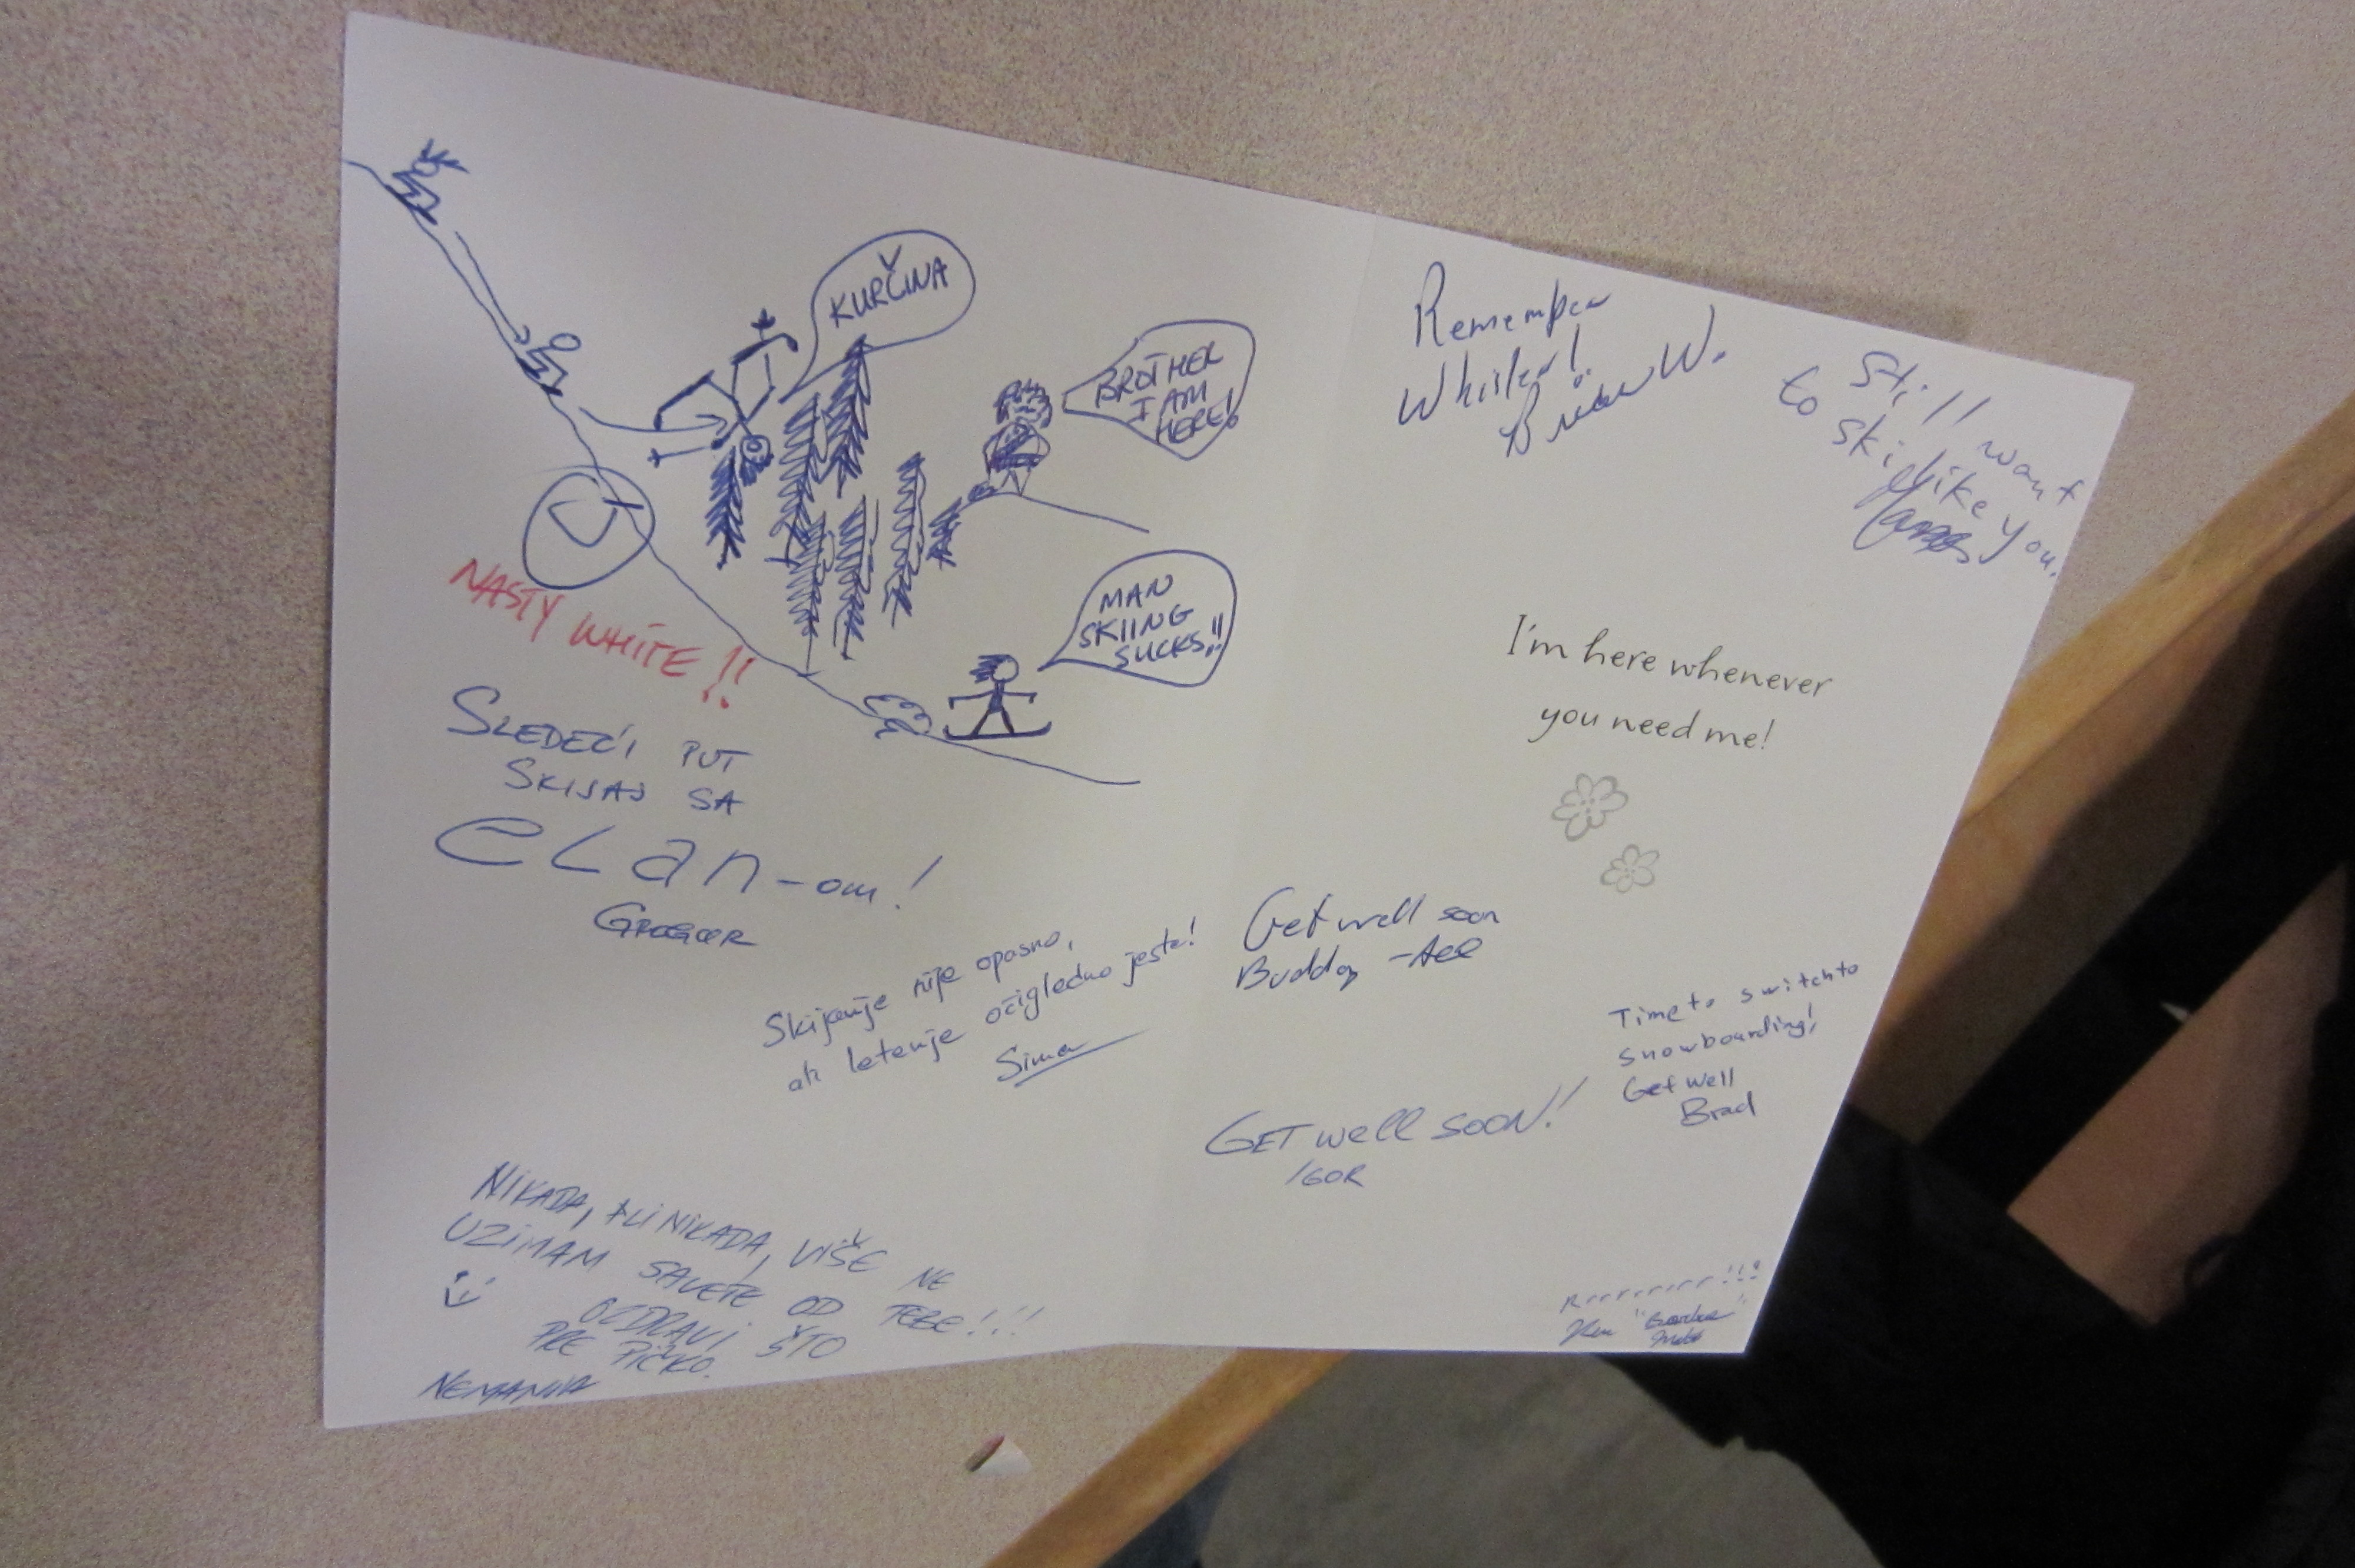 KURČINA
BROTHER
I AM
HERE!
MAN
SKIING
SUCKS!!
NASTY WHITE!!
SLEDEĆI PUT
SKIJAJ SA
eLan-om!
GREGOR
Skijanje nije opasno,
ali letenje očigledno jeste!
Sima
NIKADA, ALI NIKADA, VIŠE NE
UZIMAM SAVETE OD TEBE!!!
OZDRAVI ŠTO
PRE PIČKO.
NEMANJA
Remember
Whistler!
Brian W.
Still want
to ski like you.
I'm here whenever
you need me!
Get well soon
Buddy
Time to switch to
snowboarding!
Get well
Brad
GET well SOON!
IGOR
Rrrrrrrr!!!
Ken